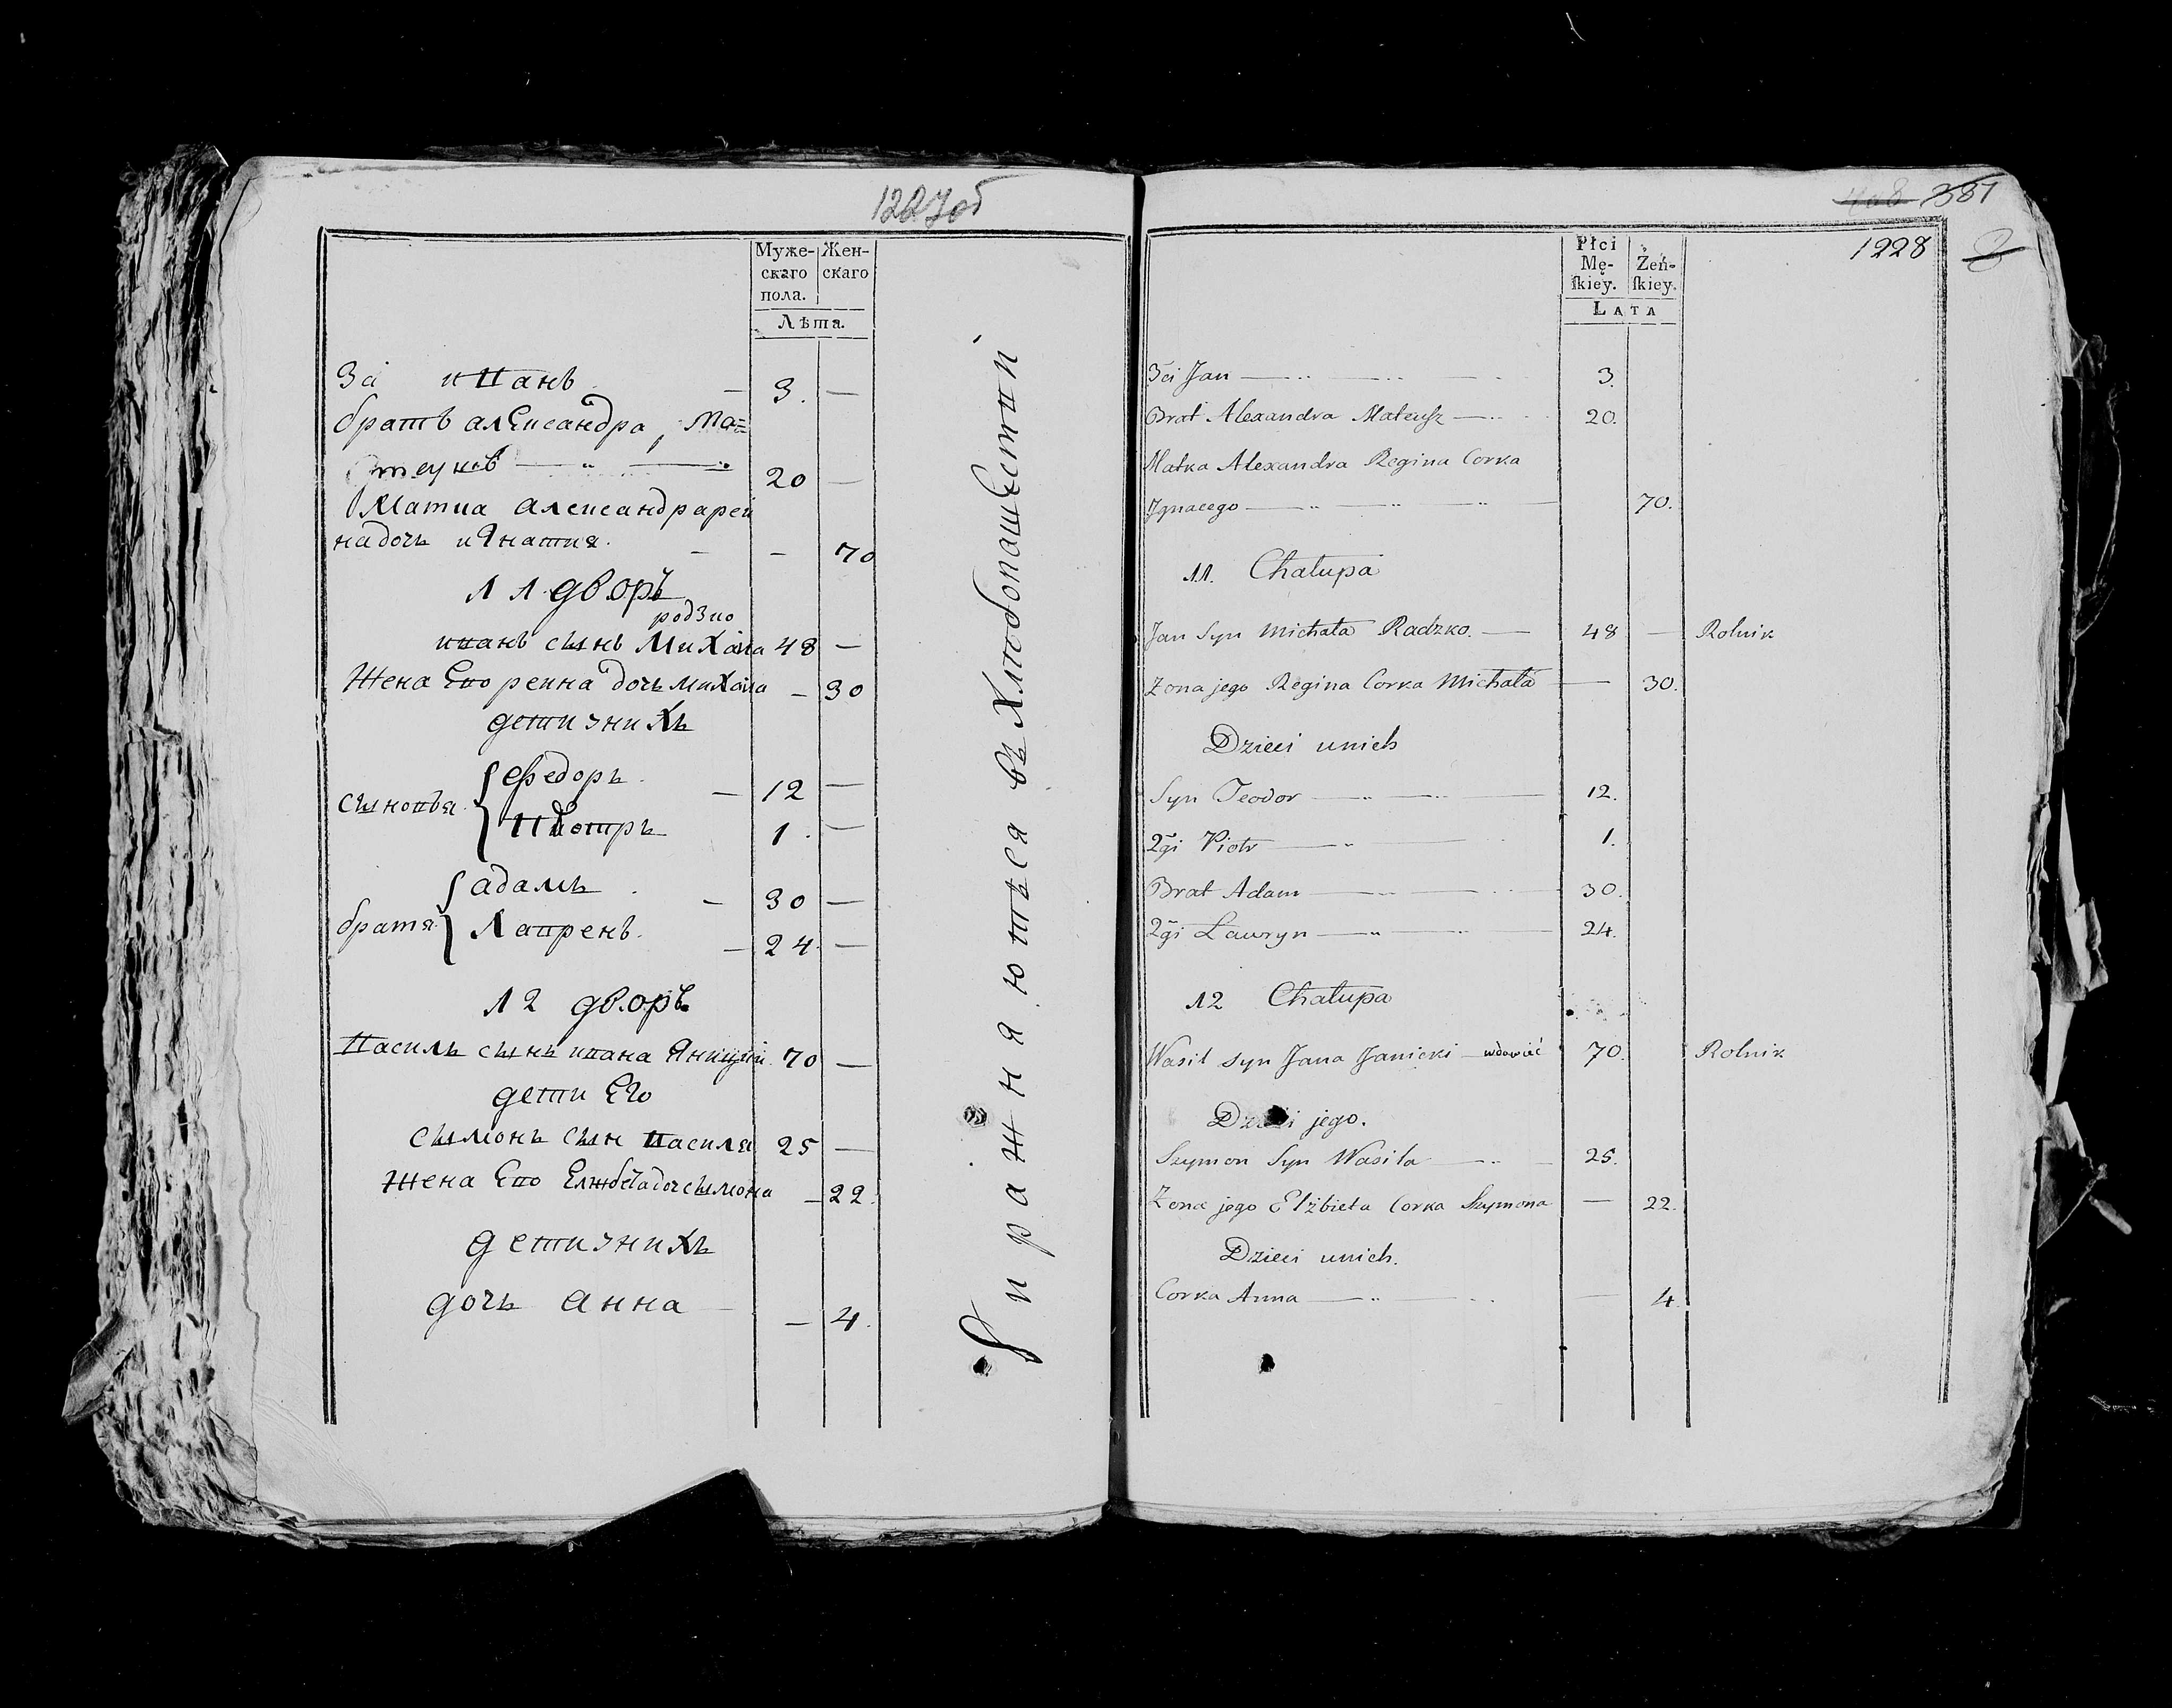 1227об
Муже-
скаго
пола.
Жен-
скаго
Лѣта.
3ій иванъ 3. —
братъ александра, Ма=
теушъ 20 —
Матка александра реги
на дочь игнатия. — 70
11 дворъ
родзко
иванъ сынъ Михаила 48 —
Жена Его регина дочь михаила — 30
дети з них
сыновья
Федоръ — 12 —
Пиотръ 1. —
братя
адамъ — 30 —
Лавренъ. — 24. —
12 дворъ
Василь сынъ ивана Яницкий 70 —
дети Его
Сымонъ сын василя 25 —
Жена Его Елжбета доч сымона — 22.
дети з них
дочь анна — 4.
Упражняются въ Хлебопашестви
381
1228
Płci
Mę-
skiey.
Żeń-
skiey.
LATA
3ci Jan 3.
Brat Alexandra Mateusz 20.
Matka Alexandra Regina Corka
Jgnacego 70.
11. Chałupa
Jan Syn Michała Radzko. — 48 — Rolnik
Zona jego Regina Corka Michała — 30.
Dzieci unich
Syn Teodor 12.
2gi Piotr 1.
Brat Adam 30.
2gi Ławryn 24.
12 Chałupa
Wasil syn Jana Janicki — wdowiec 70. Rolnik
Dzieci jego.
Szymon Syn Wasila 25.
Zona jego Elżbieta Corka Szymona — 22.
Dzieci unich.
Corka Anna — 4.